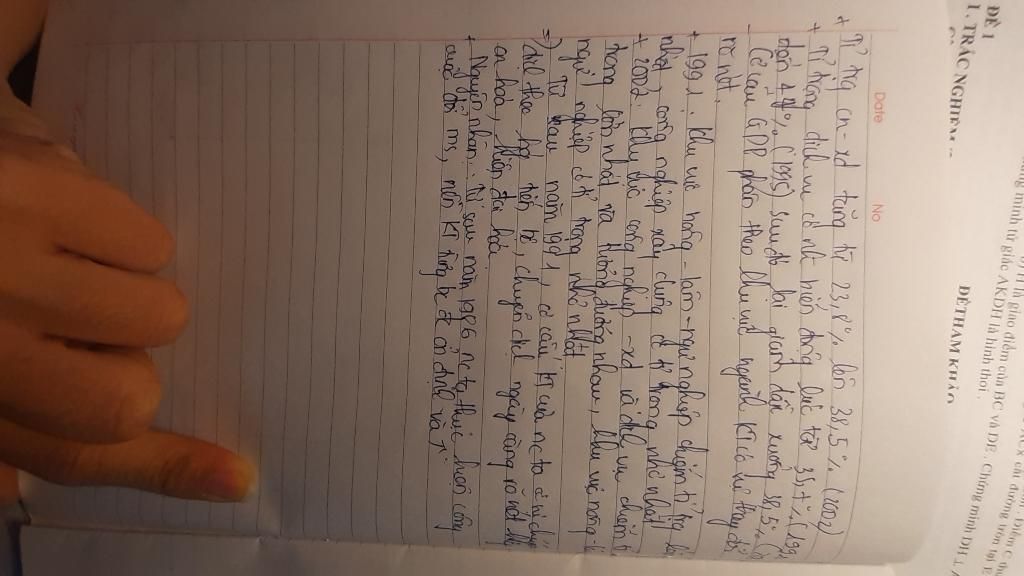 ĐỀ 1
1. TRẮC NGHIỆM
ĐỀ THAM KHẢO
là giao điểm của BC và DE. Chứng minh DH
minh tứ giác AKDH là hình thoi.
Date No
+ Tỉ trọng cn-xd tăng từ 23,8% lên 38,5% (2002)
+ Tỉ trọng dịch vụ có nh biến động lúc từ 35,7% (199
44% (1995) sau đó lại giảm dần xuống 38,5%
- Cơ cấu GDP phân theo khu vực ngành KT có sự thay đổi
rõ rệt.
+ 1991: Khu vực nông-lâm-ngư nghiệp chiếm tỉ trọng
nhất, công nghiệp xây dựng có tỉ trọng nhỏ nhất
+ 2002: Khu vực công nghiệp-xd và dịch vụ chiếm tỉ
trọng lớn nhất và tương đương nhau, khu vực nông
ngư nghiệp có tỉ trọng nhỏ nhất
=> Từ sau năm 1991, cơ cấu KT của nc ta có sự chuyển
dịch theo hg tiến bộ, chuyển dịch ngày càng rõ nét
cn hoá, hiện đại hóa.
+ Nguyên nhân: Từ sau năm 1986 nc ta thực hiện công
cuộc đổi mới, nền KT từng bc đc ổn định và